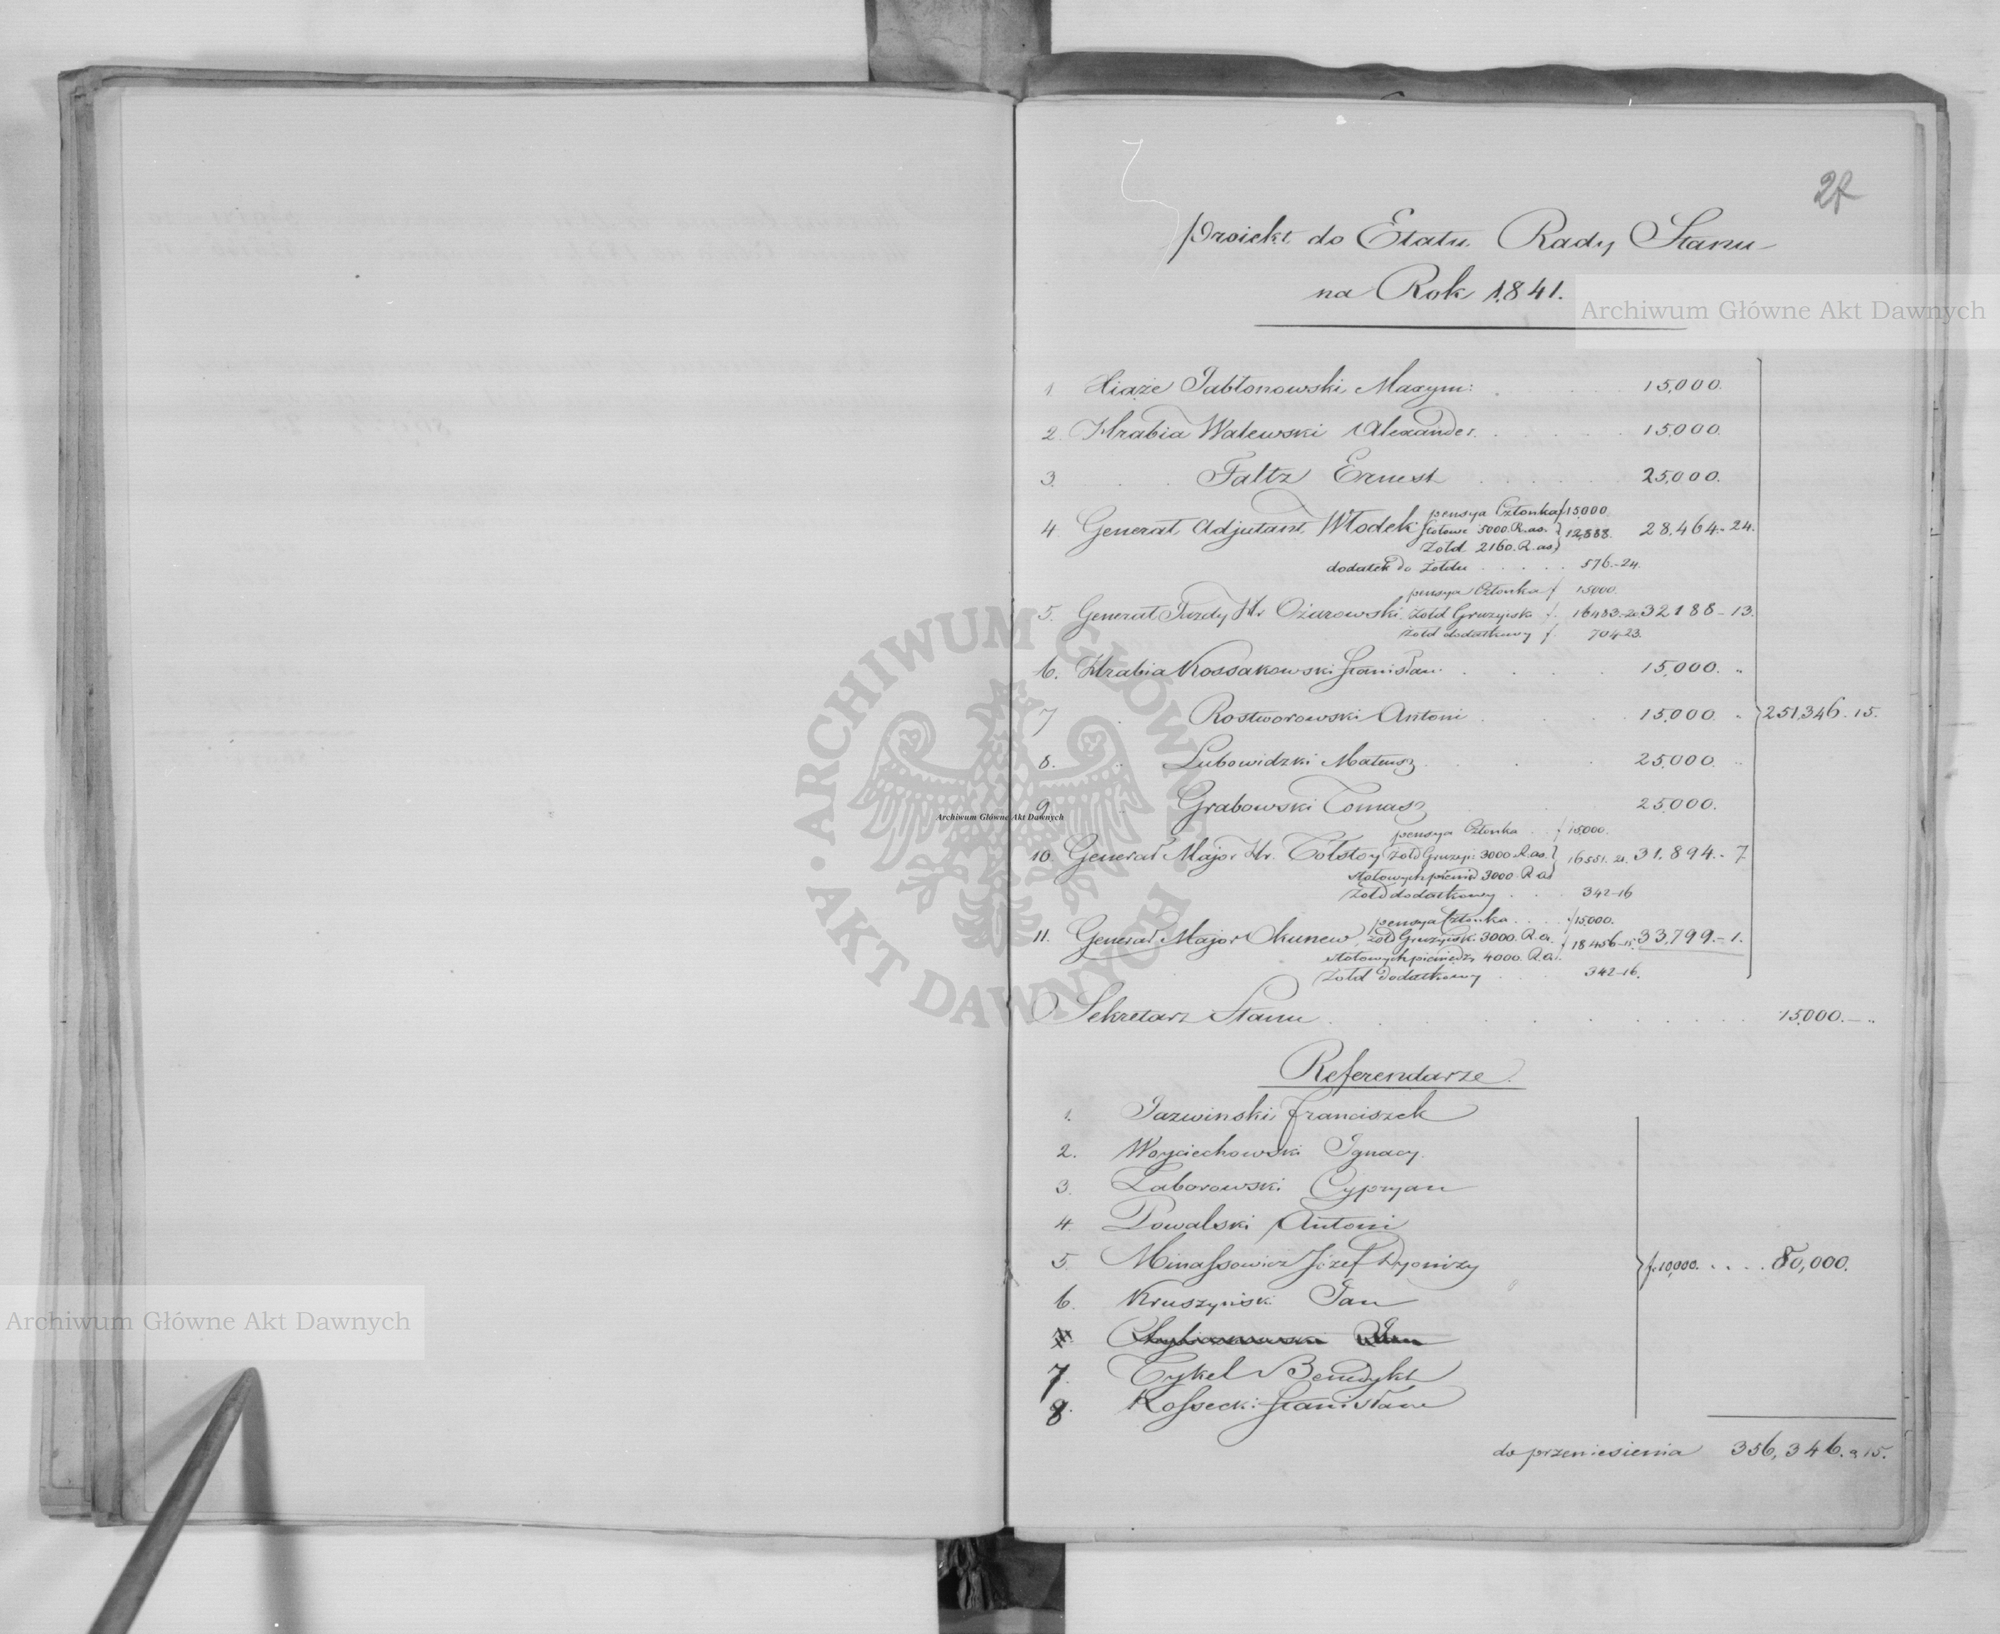 27
Proiekt do Etatu Rady Stanu
na Rok 1841.
Archiwum Główne Akt Dawnych
1 Xiąże Jabłonowski Maxym: 15,000.
2. Hrabia Walewski Alexander. 15,000.
3. Faltz Ernest 25,000.
pensya Członka f 15000
4. Generał Adjutant Włodek stołowe 5000. R. as. 12,888. 28,464.-24.
Żołd. 2160. R. as
dodatek do żołdu 576.-24.
pensya Członka f 15000.
5. Generał Hr Ożarowski. żołd Gruzyńsk f. 16483-20 32188-13.
żołd dodatkowy f. 704-23.
6. Hrabia Kossakowski Stanisław. 15,000. „
7 Rostworowski Antoni 15,000. „ 251,346-15.
8. „ Lubowidzki Mateusz 25,000. „
Archiwum Główne Akt Dawnych
9 „ Grabowski Tomasz 25000.
pensya Członka f 15000.
10. Generał Major Hr. Tolstoy żołd Gruzyń: 3000 R. as. 16551. 21. 31,894.-7.
stołowych pienię 3000. R. as
żołd dodatkowy 342-16
pensya Członka f 15000.
11. Generał Major Okunew, żołd Gruzyńsk: 3000. R. a. 18456-15. 33,799.-1.
stołowych pieniędzy 4000. R. a.
żołd dodatkowy 342-16.
Sekretarz Stanu 15,000.- „
Referendarze.
1. Jazwinski Franciszek
2. Woyciechowski Ignacy.
3. Zaborowski Cypryan
4. Powalski Antoni
5. Minassowicz Józef Dyonizy f. 10,000. 80,000.
6. Kruszyński Jan
7. Cykel Benedykt
8. Kossecki Stanisław
do przeniesienia 356,346. „ 15.
Archiwum Główne Akt Dawnych
ARCHIWUM GŁÓWNE AKT DAWNYCH